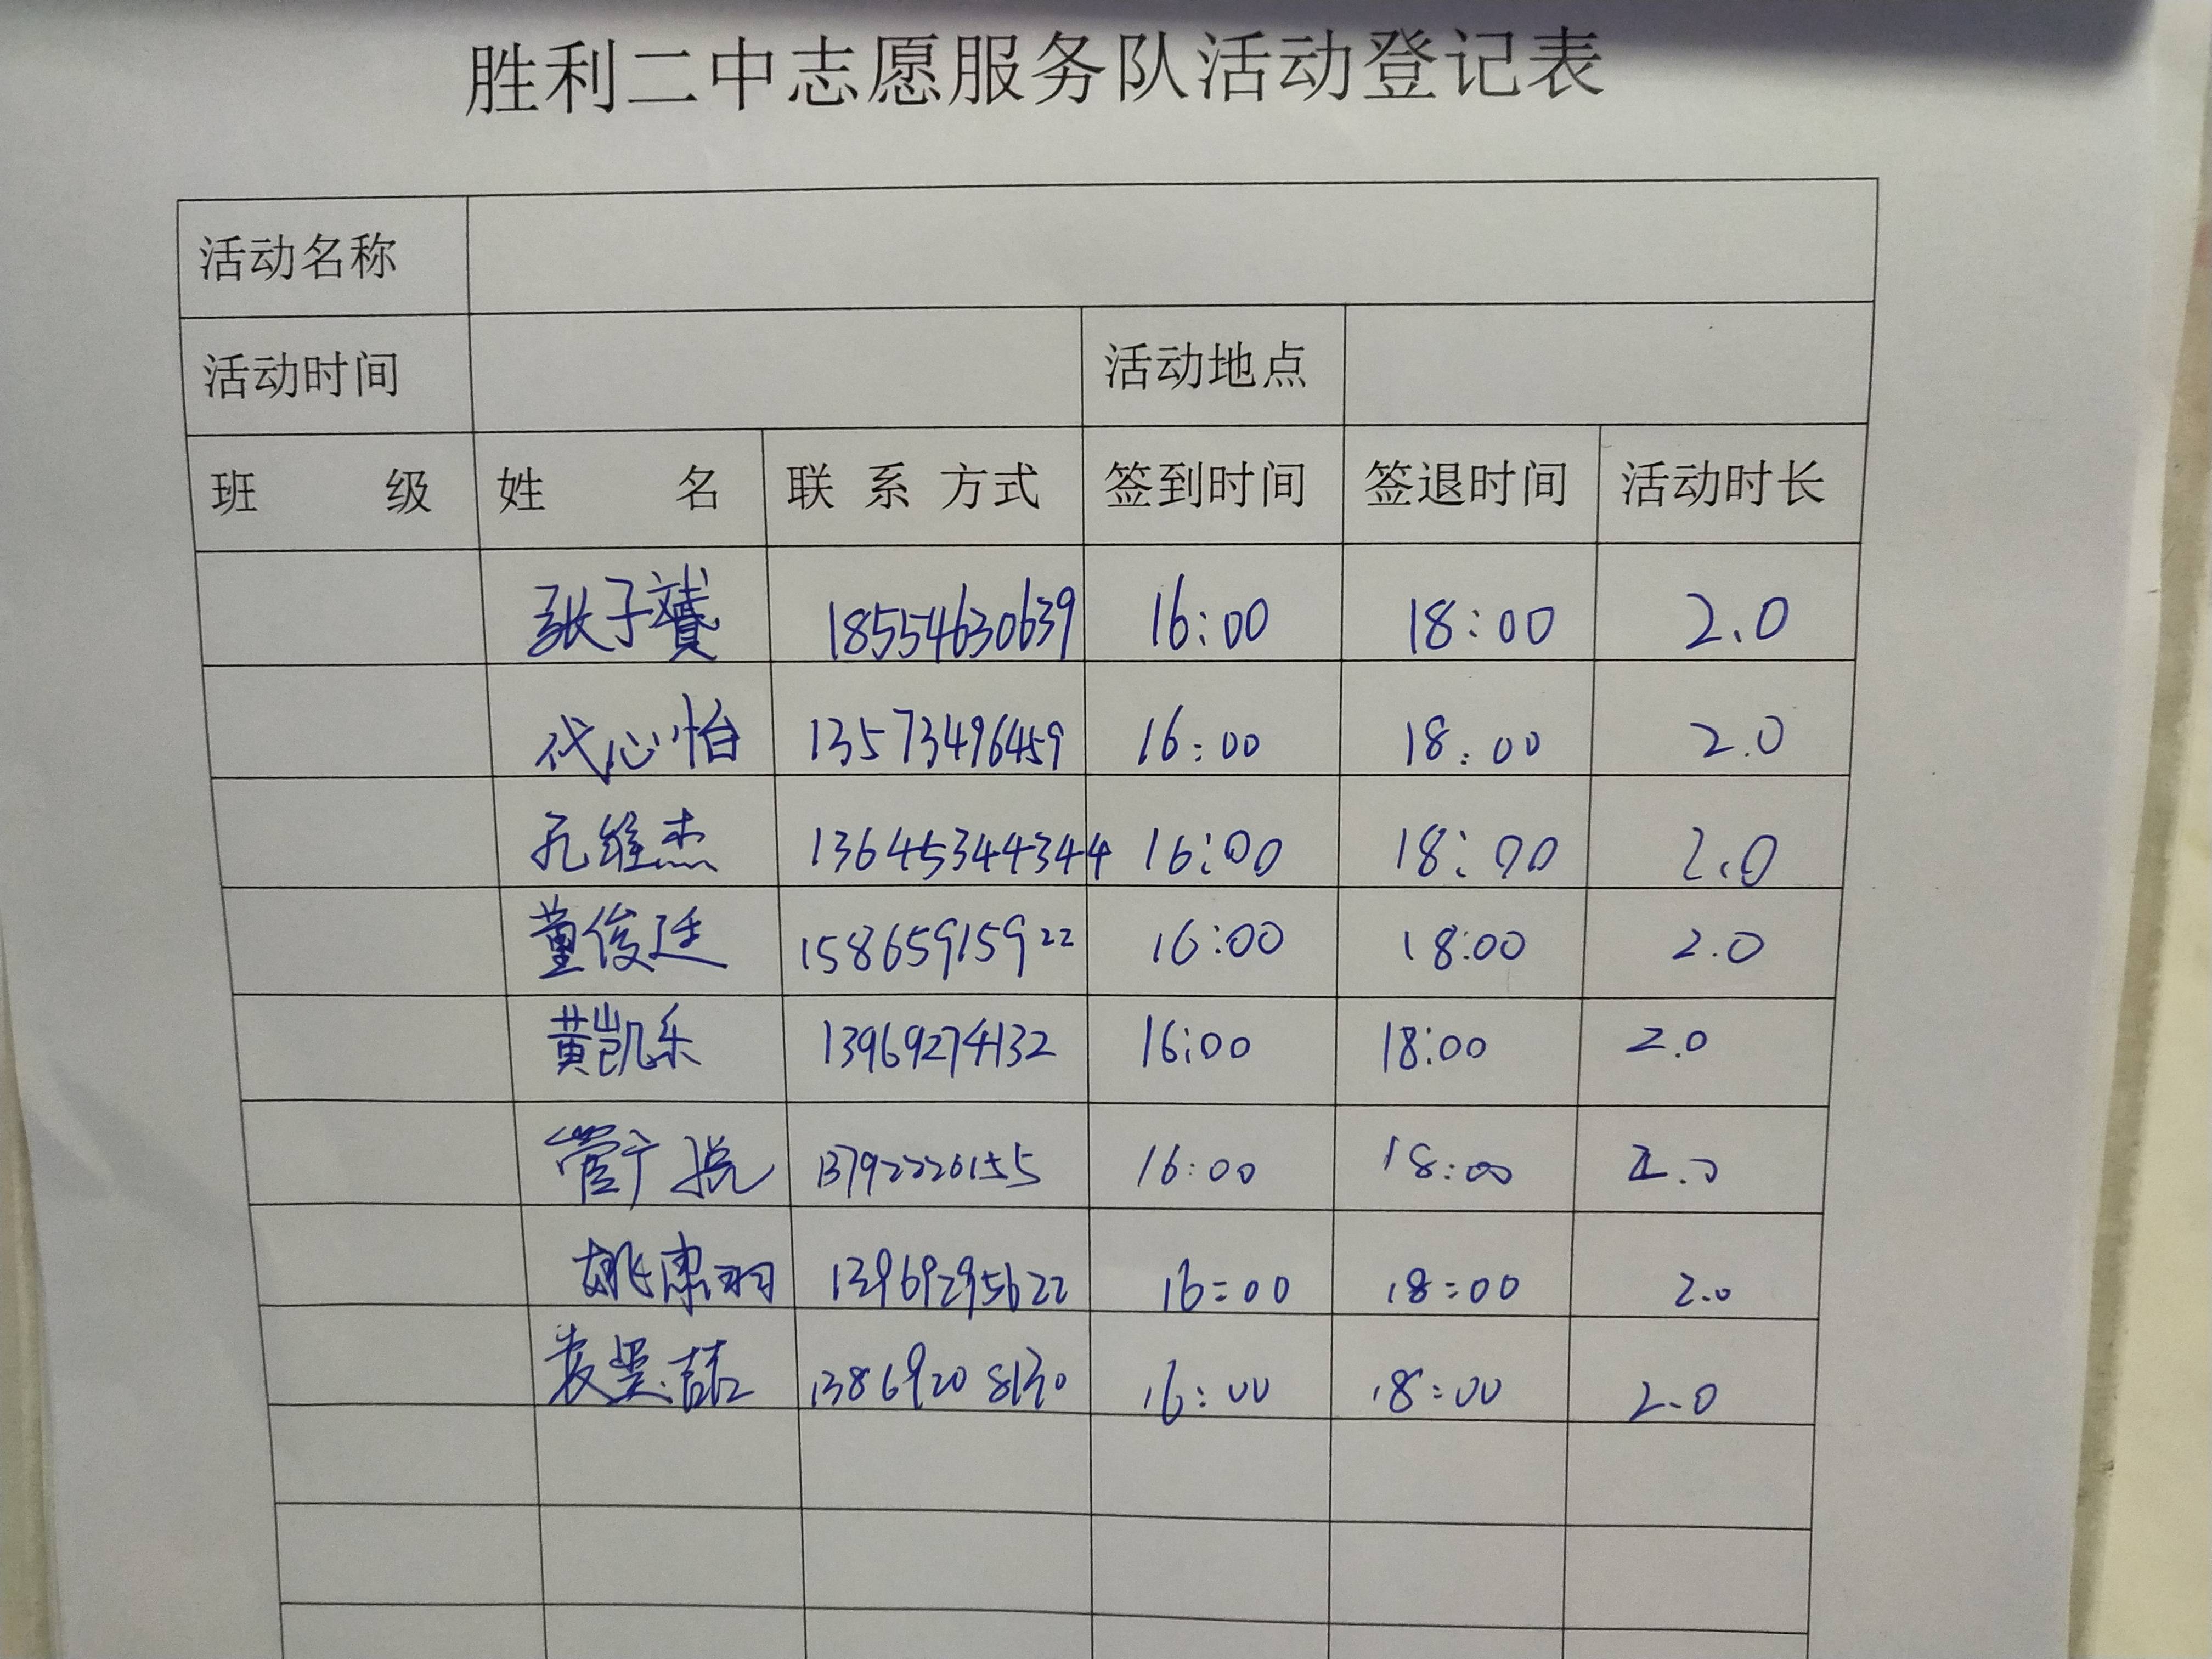 胜利二中志愿服务队活动登记表
活动名称
活动时间 活动地点
班 级 姓 名 联 系 方式 签到时间 签退时间 活动时长
张子赟 18554630639 16:00 18:00 2.0
代心怡 13573496459 16:00 18:00 2.0
孔维杰 13645344344 16:00 18:00 2.0
董俊廷 15865915922 16:00 18:00 2.0
黄凯乐 13969274132 16:00 18:00 2.0
管宁 13792220155 16:00 18:00 2.0
姚惠羽 13969295622 16:00 18:00 2.0
袁昊喆 13869208130 16:00 18:00 2.0